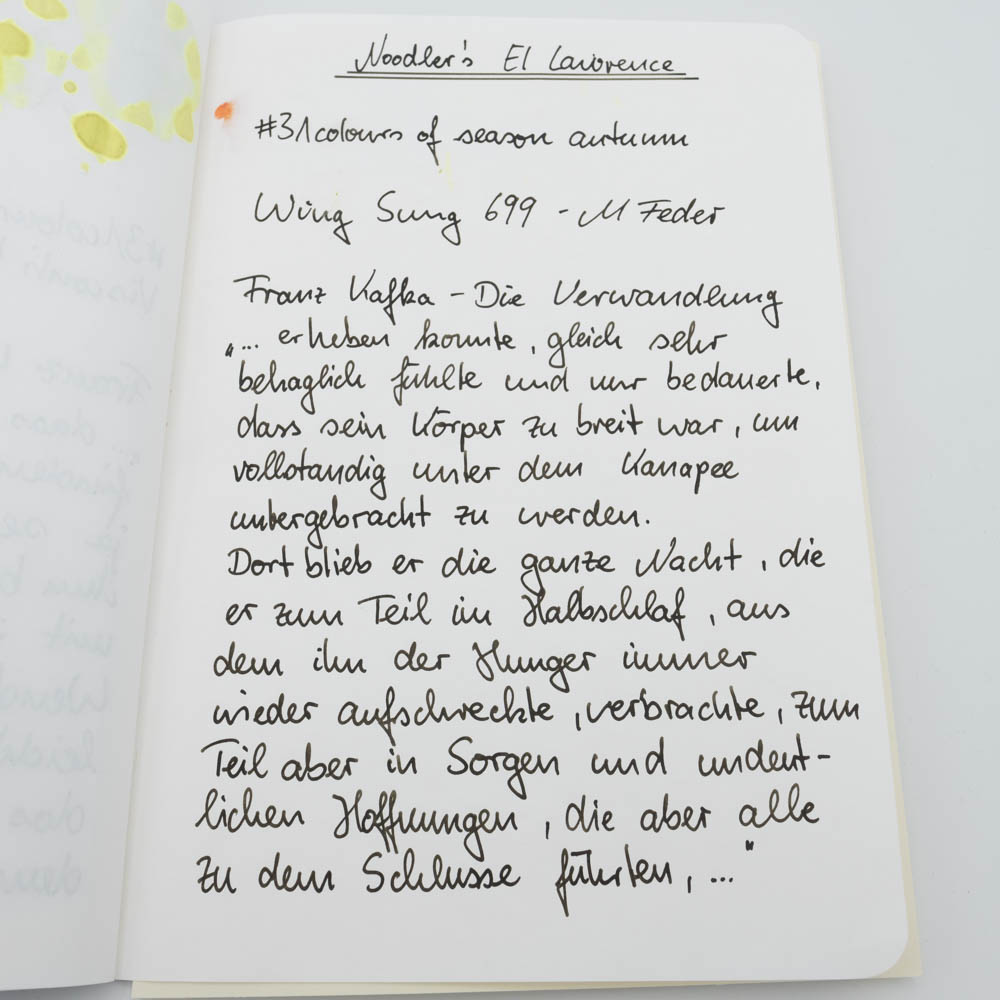 Noodler's El Lawrence
#31colours of season autumn
Wing Sung 699 - M Feder
Franz Kafka - Die Verwandlung
"... erheben konnte, gleich sehr
behaglich fühlte und nur bedauerte,
dass sein Körper zu breit war, um
vollständig unter dem Kanapee
untergebracht zu werden.
Dort blieb er die ganze Nacht, die
er zum Teil im Halbschlaf, aus
dem ihn der Hunger immer
wieder aufschreckte, verbrachte, zum
Teil aber in Sorgen und undeut-
lichen Hoffnungen, die aber alle
zu dem Schlusse führten, ..."